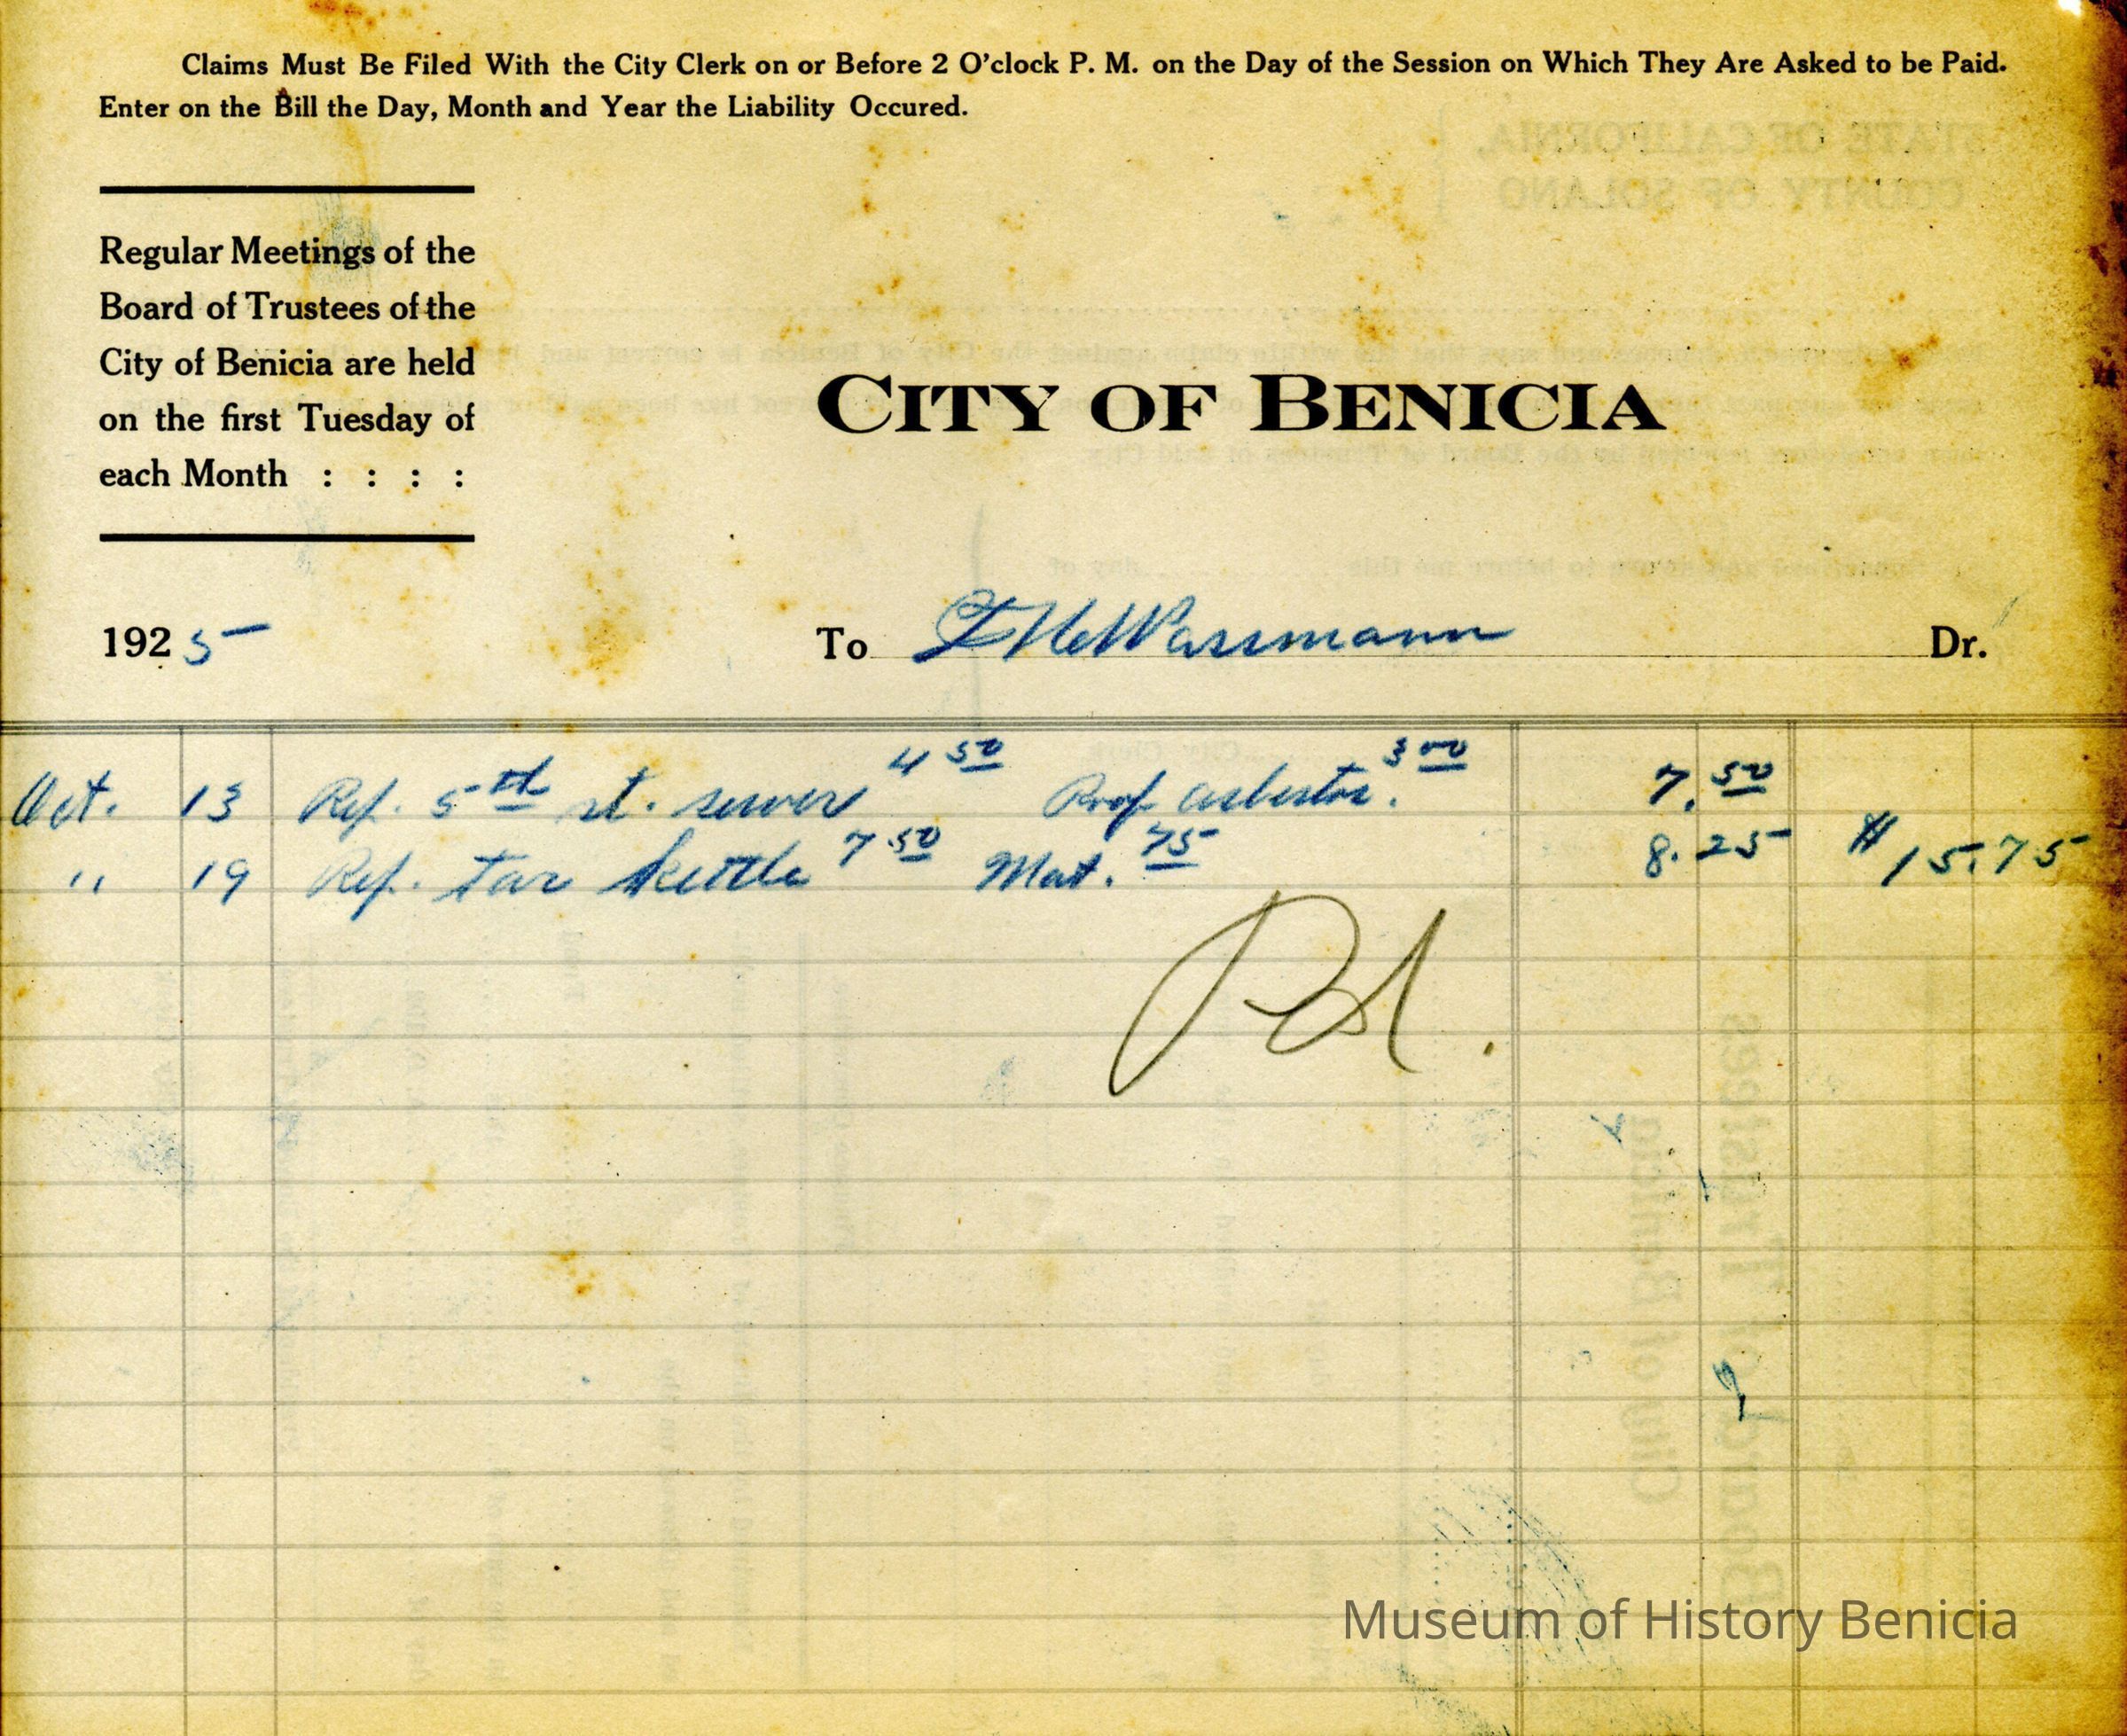 Claims Must Be Filed With the City Clerk on or Before 2 O'clock P. M. on the Day of the Session on Which They Are Asked to be Paid.
Enter on the Bill the Day, Month and Year the Liability Occured.
Regular Meetings of the
Board of Trustees of the
City of Benicia are held
on the first Tuesday of
each Month : : : :
STATE OF CALIFORNIA,
COUNTY OF SOLANO
CITY OF BENICIA
1925 To Wassmann Dr.
Oct. 13 Rep. 5th st. sewer 4 50 Roof asbestos. 3 00 7.50
" 19 Rep. tar kettle 7.50 Mat. 75 8.25 $15.75
Pd.
City of Benicia
Board of Trustees
Museum of History Benicia